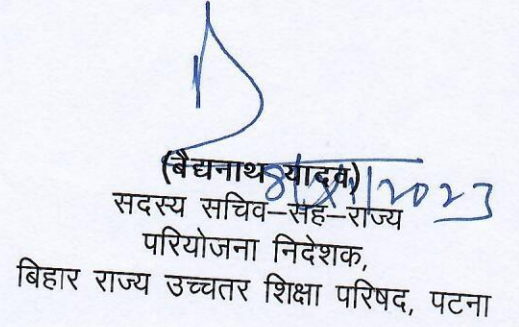 (बैद्यनाथ यादव)
8/XI/2023
सदस्य सचिव–सह–राज्य
परियोजना निदेशक,
बिहार राज्य उच्चतर शिक्षा परिषद, पटना